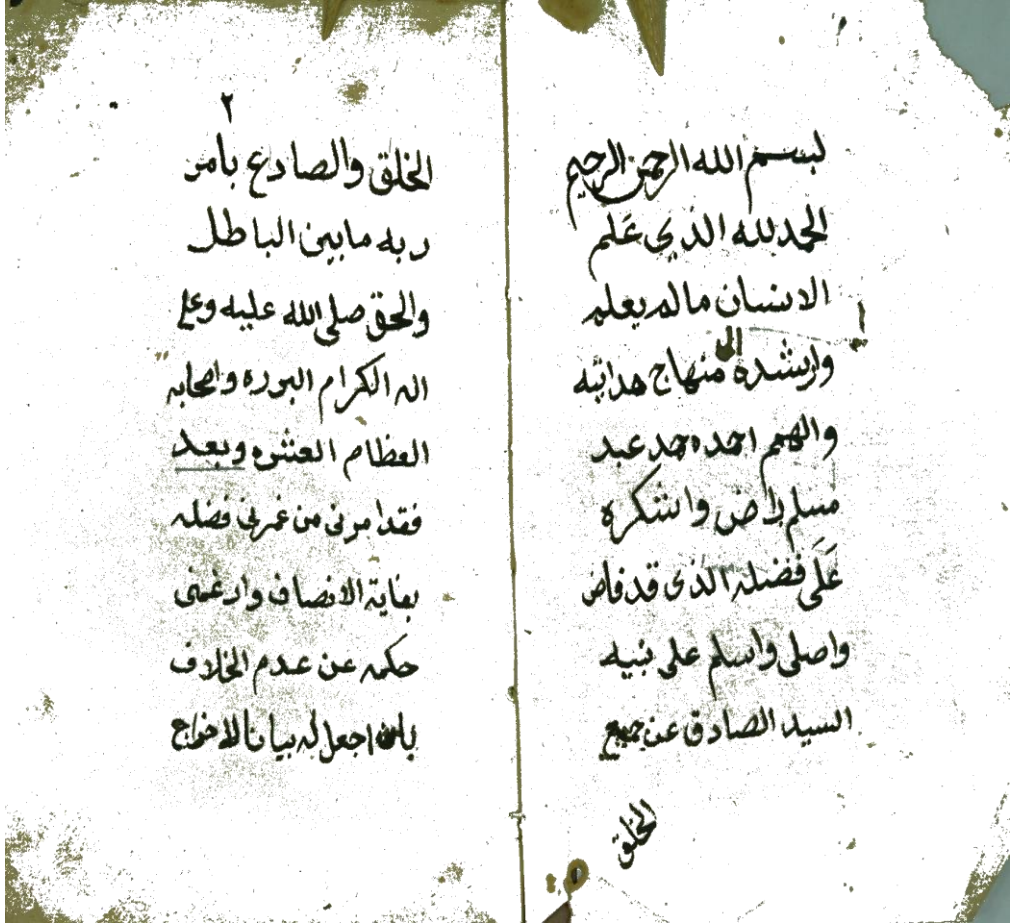 بسم الله الرحمن الرحيم
الحمد لله الذي عَلم
الانسان مالم يعلم
وارشده الى منهاج هدايته
والهم احمده حمد عبد
مسلم راض واشكره
عَلَى فضله الذى قد فاض
واصلى واسلم على نبيه
السيد الصادق عن جميع
الخلق
٢
الخلق والصادع بامر
ربه مابين الباطل
والحق صلى الله عليه وعلى
اله الكرام البرره واصحابه
العظام العشره وبعد
فقد امرنى من غمرنى فضله
بغاية الانصاف وارغمنى
حكمه عن عدم الخلاف
بان اجعل له بيانا لاخراج